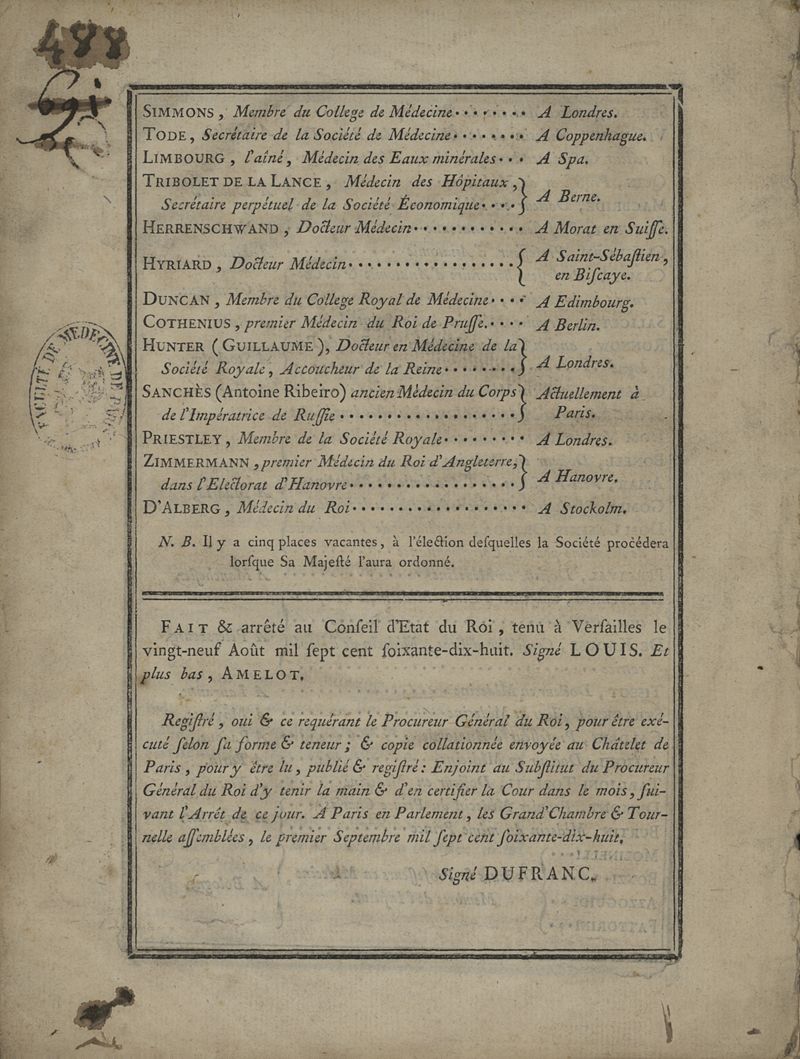 488
SIMMONS, Membre du College de Médecine........ A Londres.
TODE, Secrétaire de la Société de Médecine........ A Coppenhague.
LIMBOURG, l'aîné, Médecin des Eaux minérales... A Spa.
TRIBOLET DE LA LANCE, Médecin des Hôpitaux,
Secrétaire perpétuel de la Société Économique.... } A Berne.
HERRENSCHWAND, Docteur Médecin........... A Morat en Suiſſe.
HYRIARD, Docteur Médecin................. { A Saint-Sébaſtien,
en Biſcaye.
DUNCAN, Membre du College Royal de Médecine.... A Edimbourg.
COTHENIUS, premier Médecin du Roi de Pruſſe..... A Berlin.
HUNTER (GUILLAUME), Docteur en Médecine de la
Société Royale, Accoucheur de la Reine........ } A Londres.
SANCHÈS (Antoine Ribeiro) ancien Médecin du Corps } Actuellement à
de l'Impératrice de Ruſſie.................. Paris.
PRIESTLEY, Membre de la Société Royale........ A Londres.
ZIMMERMANN, premier Médecin du Roi d'Angleterre,
dans l'Electorat d'Hanovre................. } A Hanovre.
D'ALBERG, Médecin du Roi.................. A Stockolm.
N. B. Il y a cinq places vacantes, à l'élection deſquelles la Société procédera
lorſque Sa Majeſté l'aura ordonné.
FAIT & arrêté au Conſeil d'Etat du Roi, tenu à Verſailles le
vingt-neuf Août mil ſept cent ſoixante-dix-huit. Signé LOUIS. Et
plus bas, AMELOT.
Regiſtré, oui & ce requérant le Procureur Général du Roi, pour être exé-
cuté ſelon ſa forme & teneur; & copie collationnée envoyée au Châtelet de
Paris, pour y être lu, publié & regiſtré: Enjoint au Subſtitut du Procureur
Général du Roi d'y tenir la main & d'en certifier la Cour dans le mois, ſui-
vant l'Arrêt de ce jour. A Paris en Parlement, les Grand'Chambre & Tour-
nelle aſſemblées, le premier Septembre mil ſept cent ſoixante-dix-huit.
Signé DUFRANC.
FACULTÉ DE MEDECINE DE